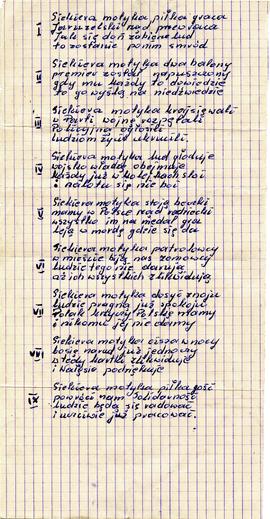 I
Siekiera motyka piłka graca
Jaruzelski nas przewraca
Jak się doń zabierze lud
to zostanie po nim smród
II
Siekiera motyka dwa balony
premier został napuszczony
gdy mu każdy to dowiedzie
to go wyślą na niedźwiedzie
III
Siekiera motyka kraj
w Partii wojnę rozpętali
Policyjną ogłosili
ludziom życie
IV
Siekiera motyka lud głoduje
wojsko władzę obejmuje
każdy już w kolejkach stoi
i nalotu się nie boi
V
Siekiera motyka stoją beczki
mamy w Polsce rząd radziecki
wszystko im na medal gra
Leją w mordę gdzie się da
VI
Siekiera motyka patrolowcy
w mieście biją nas zomowcy
ludzie tego nie darują
aż ich wszystkich zlikwidują
VII
Siekiera motyka dosyć znoju
ludzie pragną już spokoju
Polak Polskę mamy
i nikomu jej nie damy
VIII
Siekiera motyka cisza w nocy
naród już jednaki
wtedy kartki zlikwiduje
i podziękuje
IX
Siekiera motyka piłka gość
powróci nam Solidarność
ludzie będą się radować
i uczciwie już pracować.